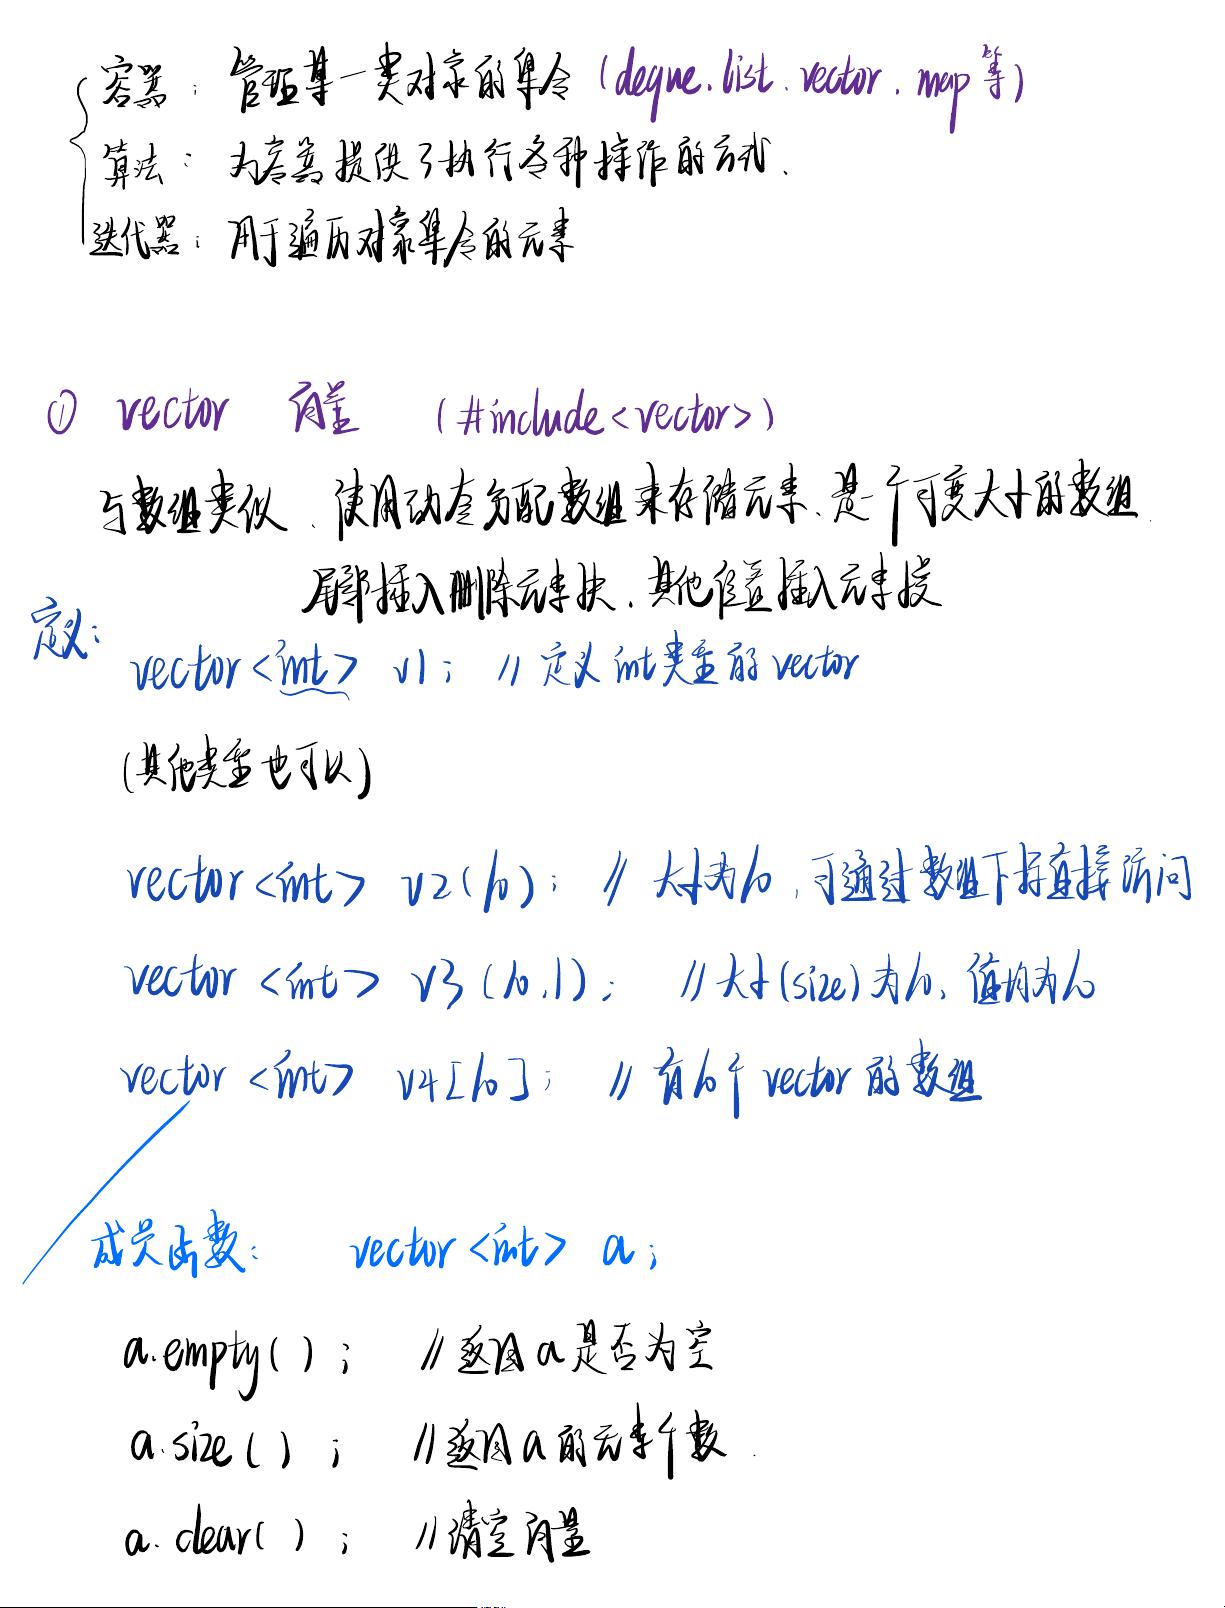 容器：管理某一类对象的集合（deque.list.vector.map等）
算法：为容器提供了执行各种操作的方式、
迭代器：用于遍历对象集合的元素
① vector 向量 （#include<vector>）
与数组类似、使用动态分配数组来存储元素、是一个可变大小的数组
尾部插入删除元素快、其他位置插入元素慢
定义：
vector<int> v1; //定义int类型的vector
(其他类型也可以)
vector<int> v2(10); //大小为10,可通过数组下标直接访问
vector<int> v3(10,1); //大小(size)为10,值均为10
vector<int> v4[10]; //有10个vector的数组
成员函数: vector<int> a;
a.empty(); //返回a是否为空
a.size(); //返回a的元素个数.
a.clear(); //清空向量